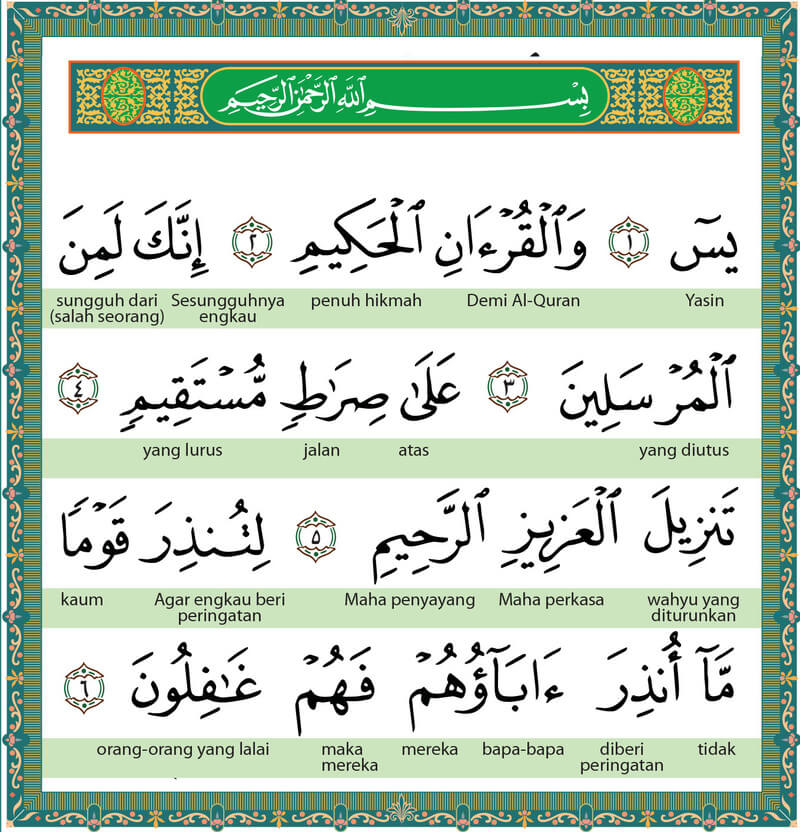 بِسْمِ ٱللَّهِ ٱلرَّحْمَٰنِ ٱلرَّحِيمِ
يسٓ ١ وَٱلْقُرْءَانِ ٱلْحَكِيمِ ٢ إِنَّكَ لَمِنَ
Yasin Demi Al-Quran penuh hikmah Sesungguhnya engkau sungguh dari (salah seorang)
ٱلْمُرْسَلِينَ ٣ عَلَىٰ صِرَٰطٍ مُّسْتَقِيمٍ ٤
yang diutus atas jalan yang lurus
تَنزِيلَ ٱلْعَزِيزِ ٱلرَّحِيمِ ٥ لِتُنذِرَ قَوْمًا
wahyu yang diturunkan Maha perkasa Maha penyayang Agar engkau beri peringatan kaum
مَّآ أُنذِرَ ءَابَآؤُهُمْ فَهُمْ غَٰفِلُونَ ٦
tidak diberi peringatan bapa-bapa mereka maka mereka orang-orang yang lalai